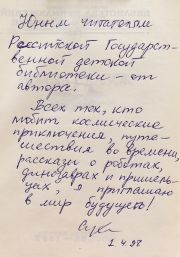 Юным читателям
Российской Государст-
венной детской
библиотеки – от
автора.
Всех тех, кто
любит космические
приключения, путе-
шествия во времени,
рассказы о роботах,
динозаврах и пришель-
цах, я приглашаю
в мир будущего!
1.4.98